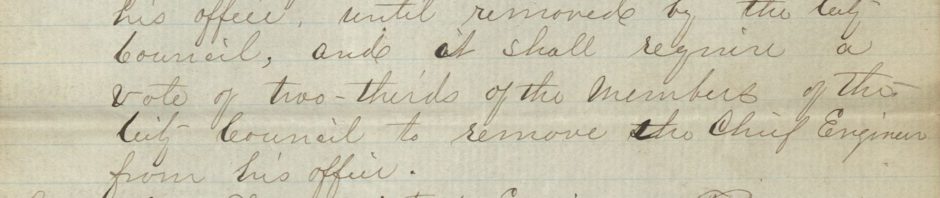 his office, until removed by the City
Council, and it shall require a
vote of two-thirds of the Members of the
City Council to remove the Chief Engineer
from his office.